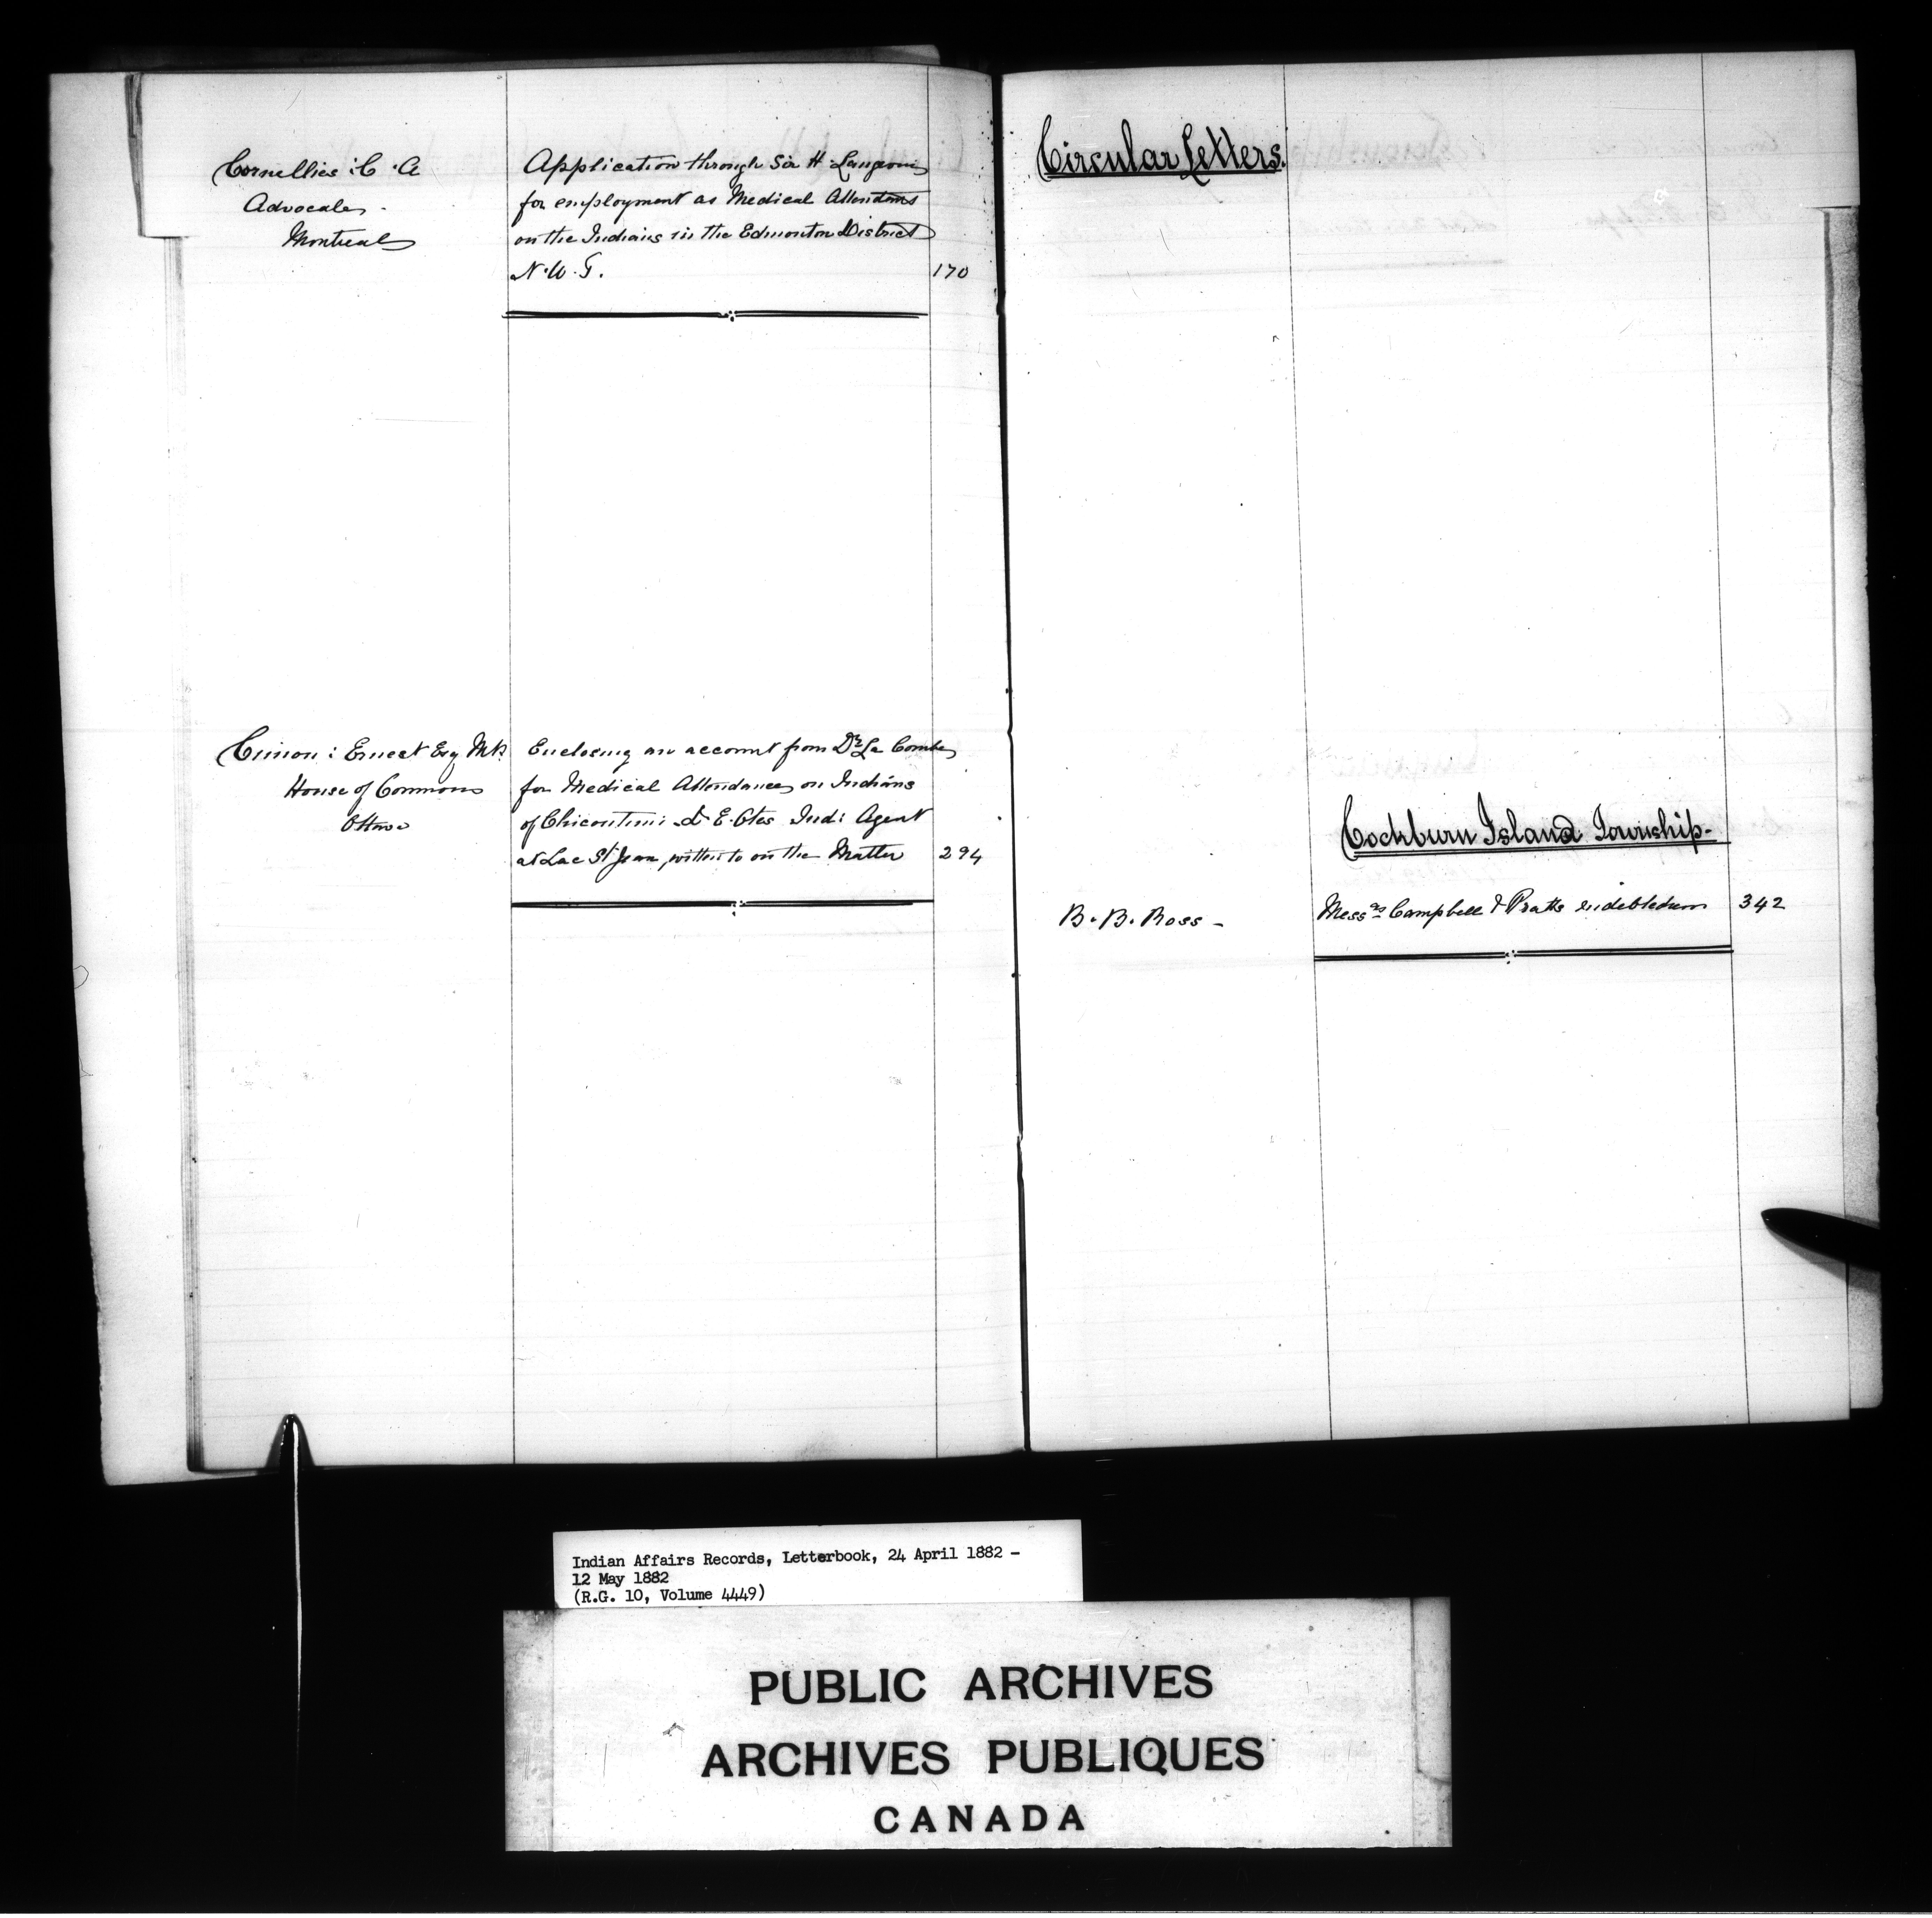 Cornellier : C . A
Advocate
Montreal
Application through Sir H. Langevin
for employment as Medical Attendant
on the Indians in the Edmonton District
N. W. T. 170
Cimon : Ernest Esq M.P.
House of Commons
Ottawa
Enclosing an account from Dr. La Combe
for Medical Attendance on Indians
of Chicoutimi L. E. Otis Ind: Agent
at Lac St Jean, written to on the Matter 294
Circular Letters.
Cockburn Island Township.
B. B. Ross - Messrs Campbell & Pratts indebtedness 342
Indian Affairs Records, Letterbook, 24 April 1882 -
12 May 1882
(R.G. 10, Volume 4449)
PUBLIC ARCHIVES
ARCHIVES PUBLIQUES
CANADA